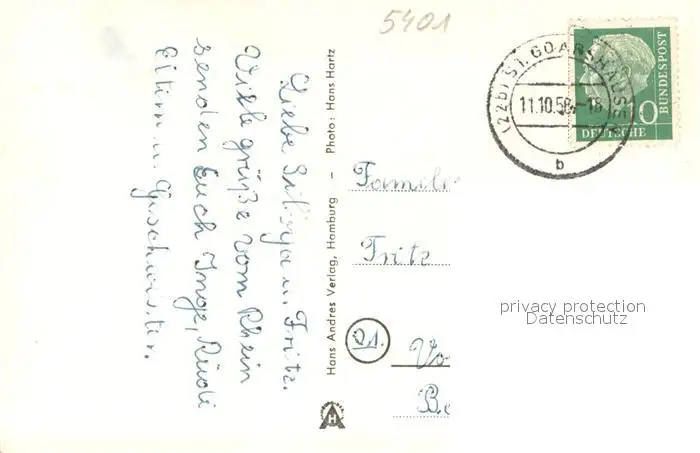 5401
(22b) ST. GOARSHAUSEN
11.10.58.-18
b
10
DEUTSCHE
BUNDESPOST
Liebe u. Fritz.
Viele grüße vom Rhein
senden Euch Inge, Rudi
Eltern u. Geschwister.
Hans Andres Verlag, Hamburg - Photo: Hans Hartz
AH
Famili
Fritz
21.
Vo
Be
privacy protection
Datenschutz